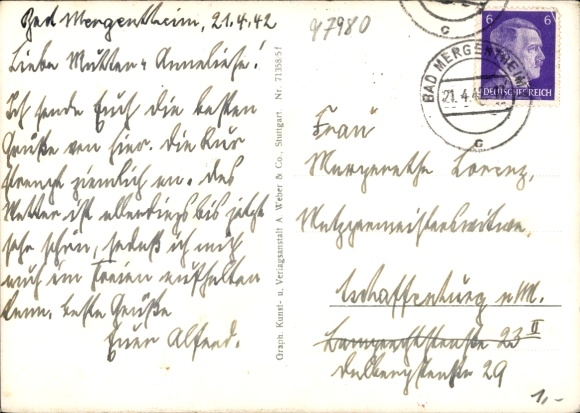 Bad Mergentheim, 21.4.42
Liebe Mutter u. Anneliese!
Ich sende Euch die besten
Grüße von hier. Die Kur
strengt ziemlich an. Das
Wetter ist allerdings bis jetzt
sehr schön, sodaß ich mich
auch im Freien aufhalten
kann. beste Grüße
Euer Alfred.
Graph. Kunst- u. Verlagsanstalt A. Weber & Co., Stuttgart. Nr. 71358/5 f
47980
6 6
DEUTSCHES REICH
BAD MERGENTHEIM
21.4.42
c
c
Frau
Margarethe Lorenz,
Metzgermeisterswitwe,
Aschaffenburg a/M.
Lamprechtstraße 23 II
Dalbergstraße 29
1,-